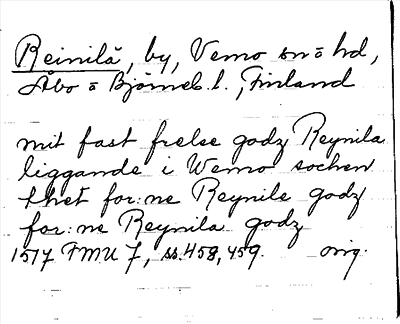 Reinilä, by, Vemo sn o hd,
Åbo o Björneb. l., Finland
mit fast frelse godz Reynila
liggande i Wemo sochen
thet for:ne Reynile godz
for:ne Reynila godz
1517 FMU 7, ss. 458, 459. orig.